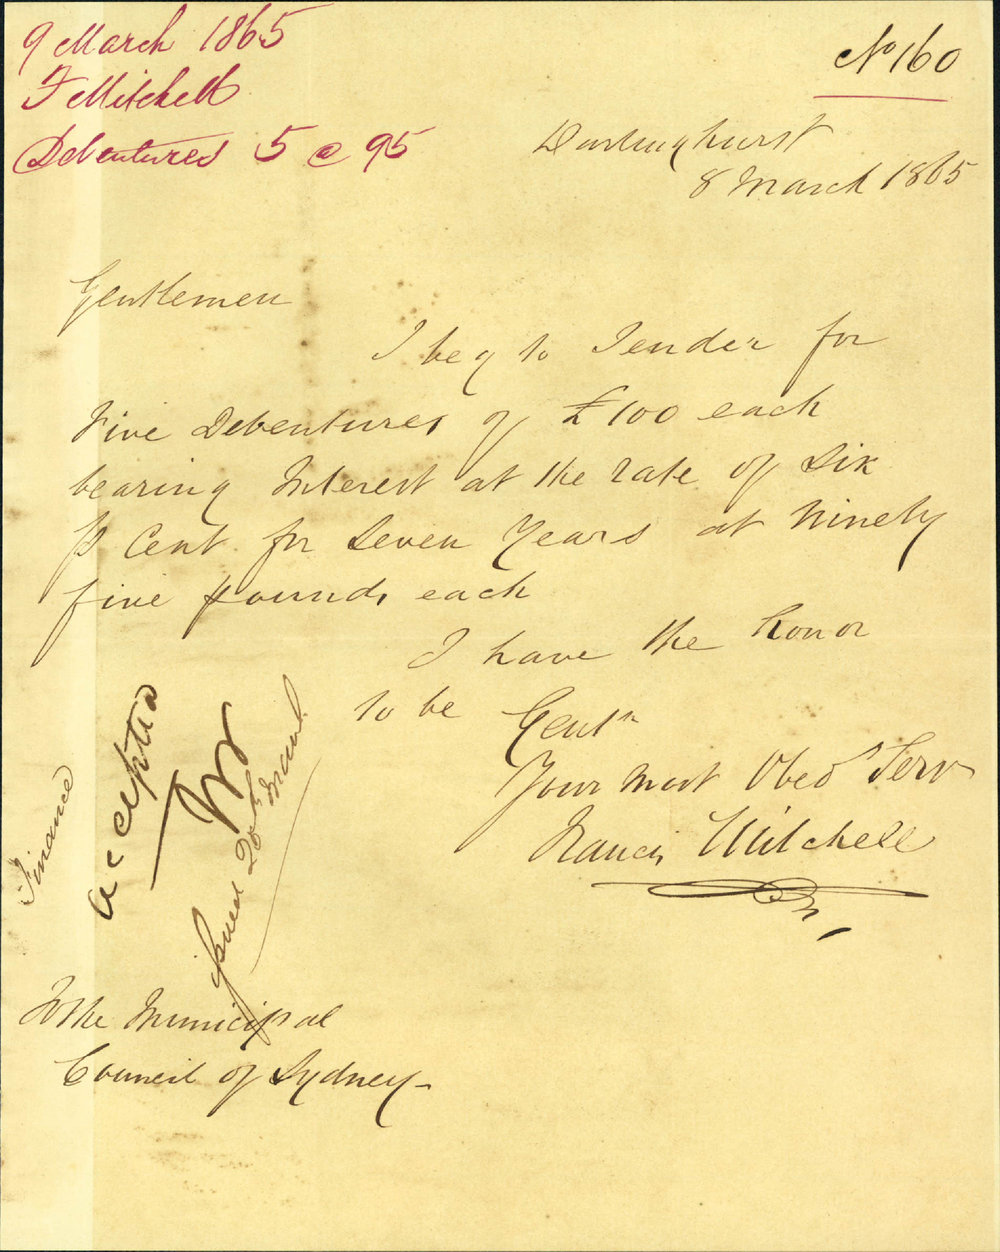 9 March 1865
F Mitchell
Debentures 5 @ 95
No 160
Darlinghurst
8 March 1865
Gentlemen
I beg to Tender for
Five Debentures of £100 each
bearing Interest at the rate of Six
P Cent for Seven Years at Ninety
five pounds each
I have the honor
to be Gentn
Your most Obed Serv
Francis Mitchell
Finance
accepted
Issued 20th March
To the Municipal
Council of Sydney